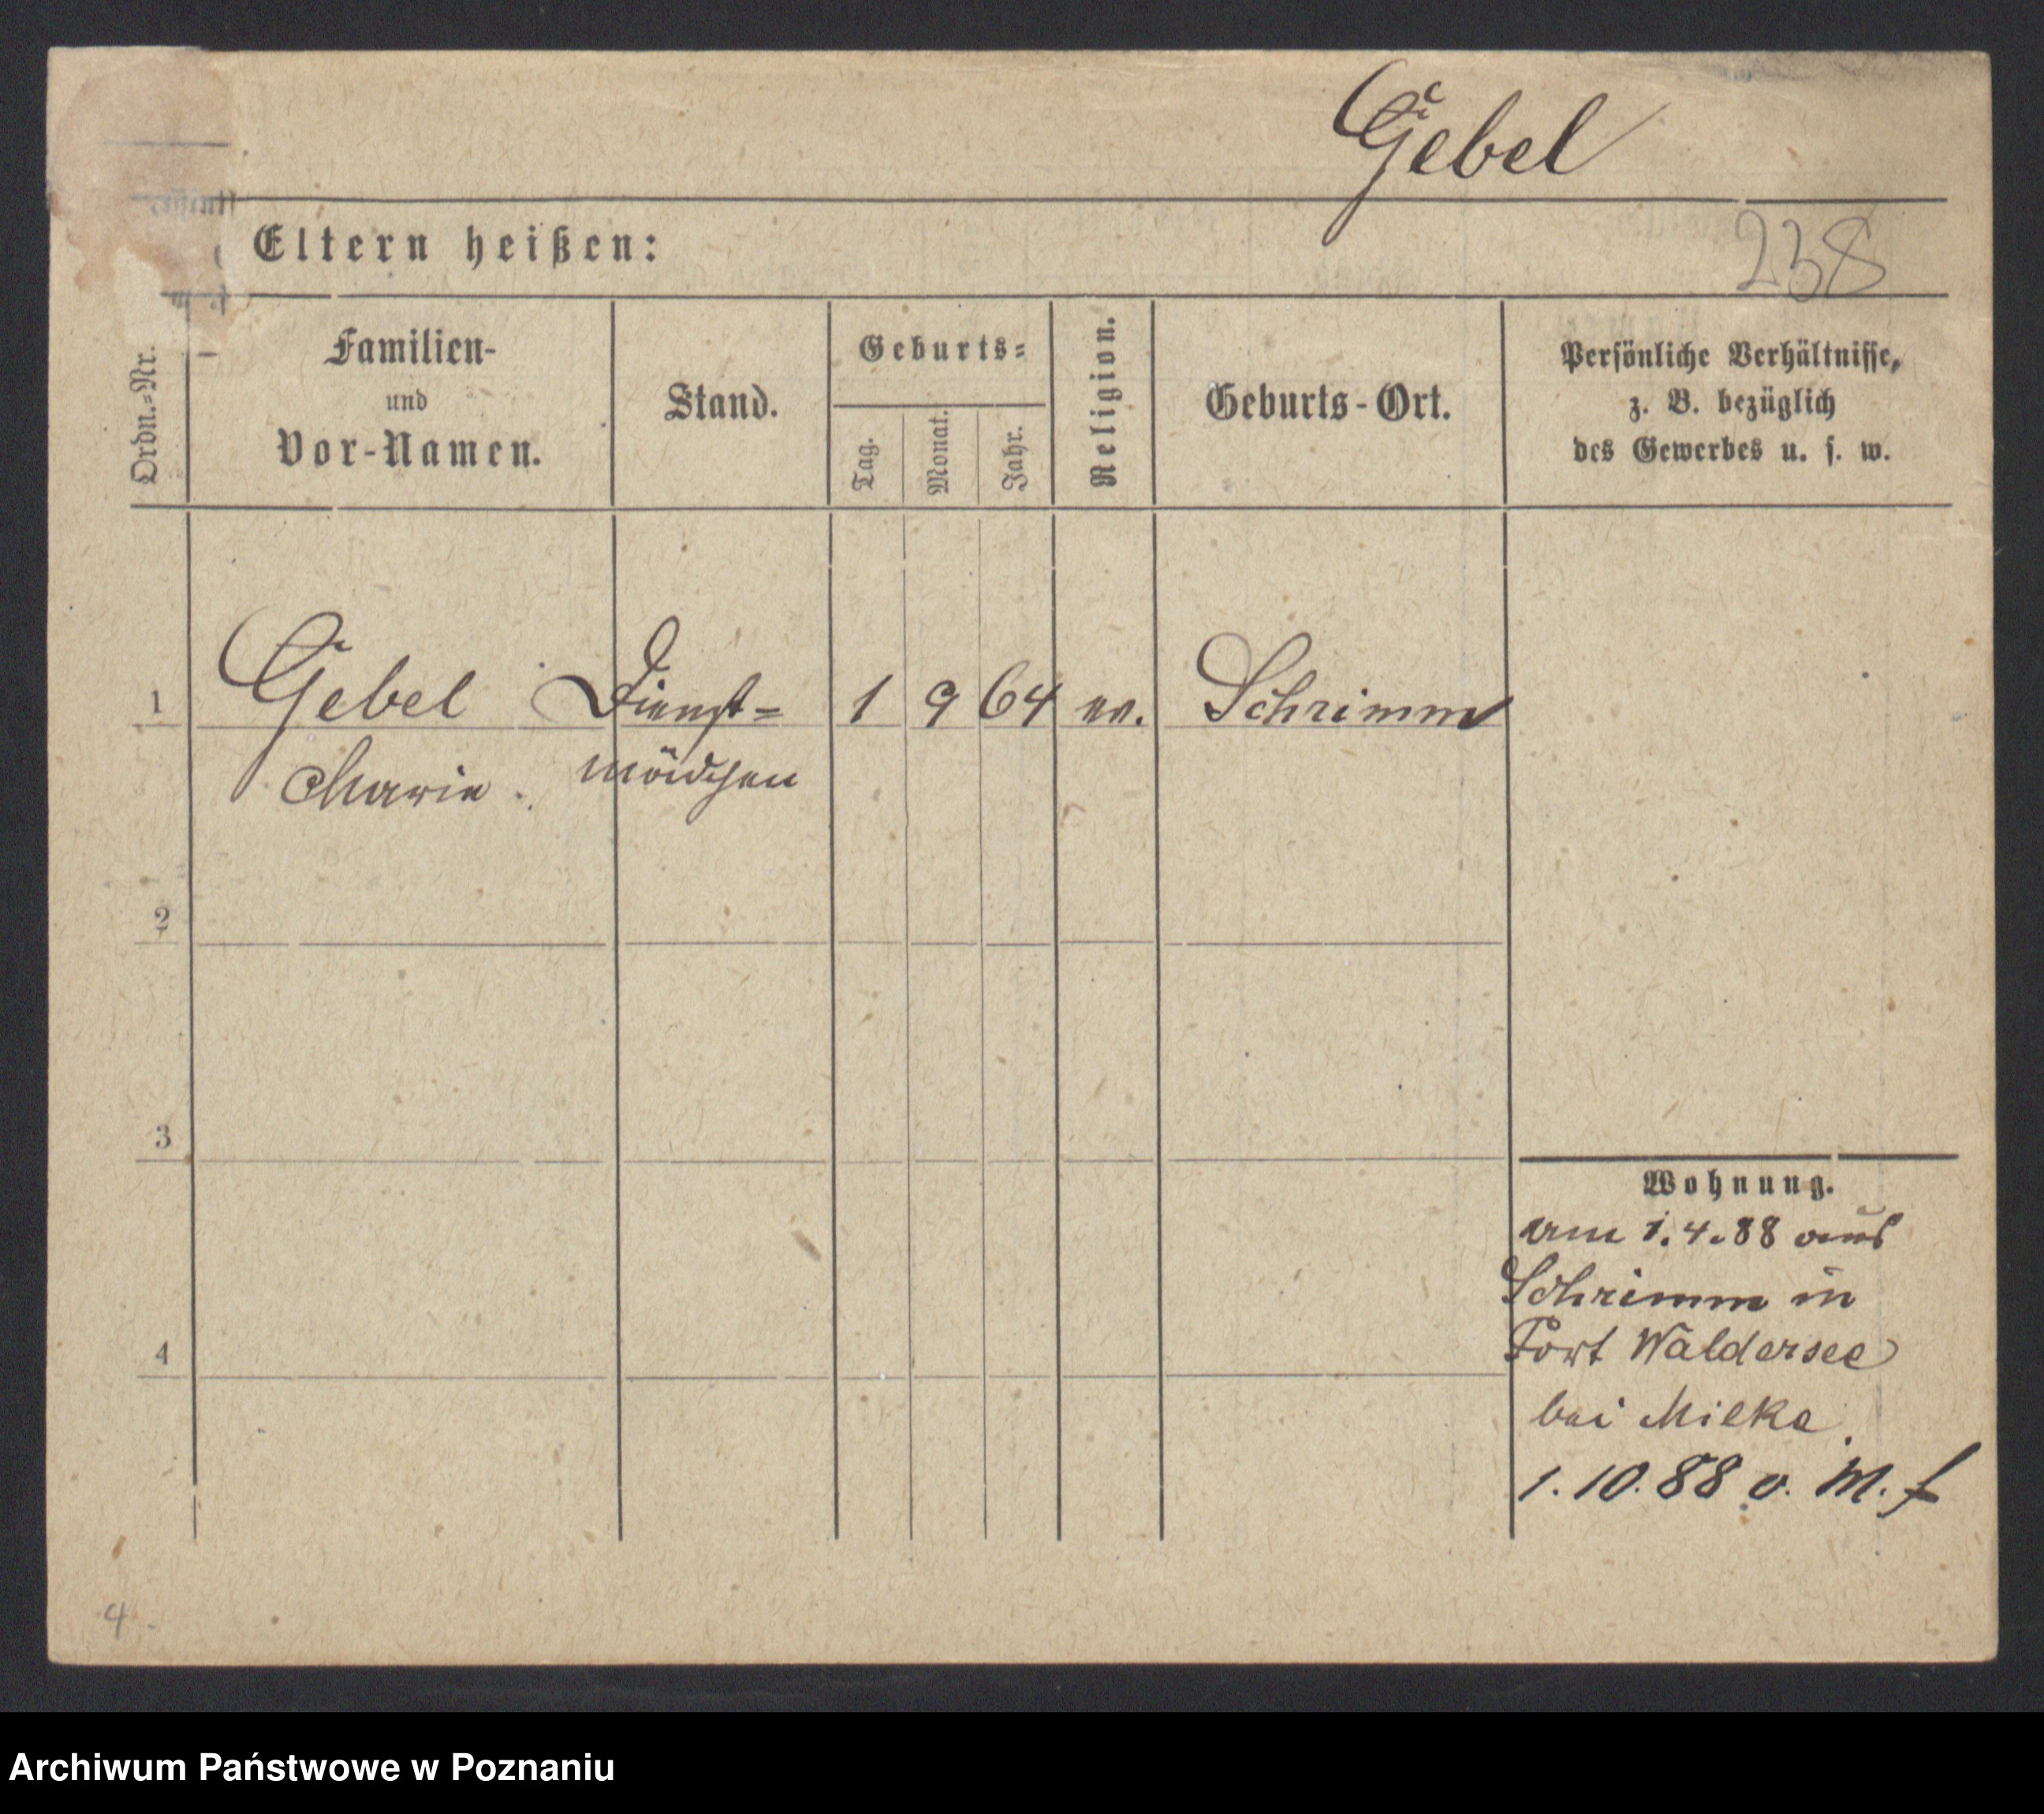 Gebel
Eltern heißen:
238
Ordn.-Nr.
Familien-
und
Vor-Namen.
Stand.
Geburts-
Tag.
Monat.
Jahr.
Religion.
Geburts-Ort.
Persönliche Verhältnisse,
z. B. bezüglich
des Gewerbes u. s. w.
1 Gebel Dienst= 1 9 64 ev. Schrimm
Marie. mädchen
2
3
4
Wohnung.
am 1.4.88 aus
Schrimm in
Fort Waldersee
bei Milke.
1.10.88 v. M. f
4
Archiwum Państwowe w Poznaniu